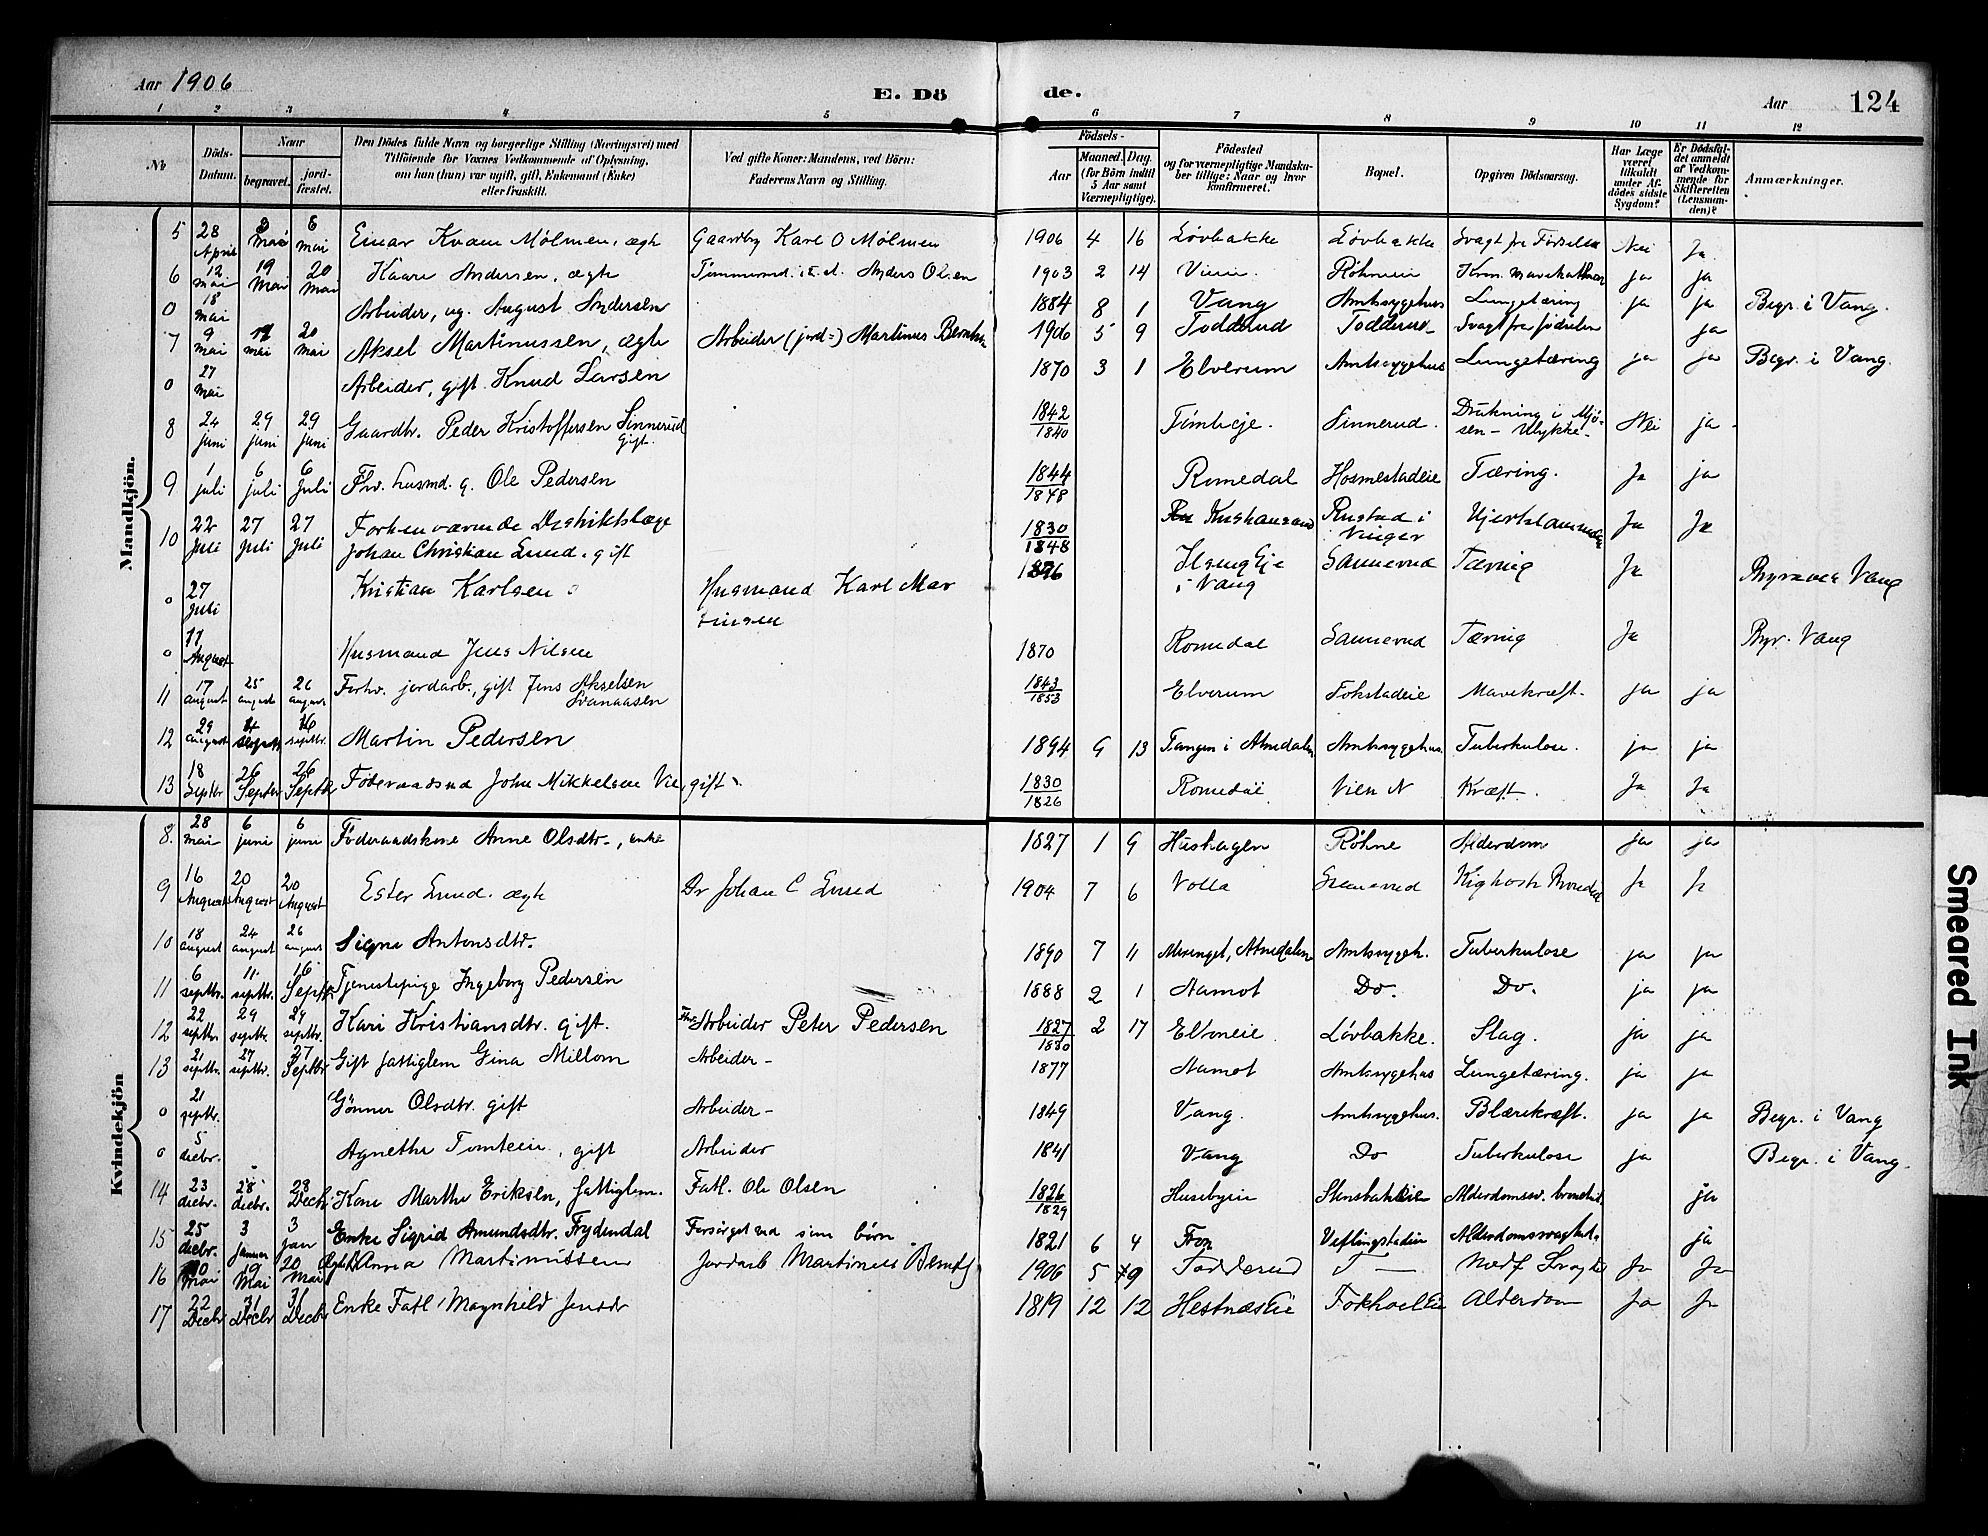 Aar 1906
E. Dö de.
Aar 124
1 2 3 4 5 6 7 8 9 10 11 12
No
Döds-Datum.
Naar
begravet.
jord-fæstet.
Den Dödes fulde Navn og borgerlige Stilling (Næringsvei) med
Tilföiende for Voxnes Vedkommende af Oplysning,
om han (hun) var ugift, gift, Enkemand (Enke)
eller fraskilt.
Ved gifte Koner: Mandens, ved Börn:
Faderens Navn og Stilling.
Födsels-
Aar
Maaned. Dag.
(for Börn indtil
5 Aar samt
Værnepligtige).
Födested
og for værnepligtige Mandska-
ber tillige: Naar og hvor
konfirmeret.
Bopæl.
Opgiven Dödsaarsag.
Har Læge
været
tilkaldt
under Af-
dödes sidste
Sygdom?
Er Dödsfal-
det anmeldt
af Vedkom-
mende for
Skifteretten
(Lensman-
den)?
Anmærkninger.
Mandkjön.
5 28 April 8 Mai 6 mai Einar Kvam Mølmen, ægte Gaardbr Karl O Mølmen 1906 4 16 Løvbakke Løvbakke Svagt fra Fødselen Nei Ja
6 12 mai 19 Mai 20 mai Kaare Andersen, ægte Anders Olsen 1903 2 14 Vien ja ja
0 18 mai Arbeider, ug. August Andersen 1884 8 1 Vang Amtssygehus Lungetæring ja ja Begr. i Vang.
7 9 mai 19 mai 20 mai Aksel Martinussen, ægte Arbeider (jord=) Martinus 1906 5 9 Todderud Todderud Svagt fra fødselen ja
0 27 mai Arbeider, gift. Knud Larsen 1870 3 1 Elverum Amtssygehus Lungetæring ja ja Begr. i Vang.
8 24 juni 29 juni 29 juni Gaardbr. Peder Kristoffersen Sinnerud gift. 1842/1840 Sinnerud. Drukning i Mjø-sen - Ulykke - Nei ja
9 1 juli 6 juli 6 Juli Fhv. husmd. g. Ole Pedersen 1844/1848 Romedal Hosmestadeie Tæring. Ja ja
10 22 Juli 27 Juli 27 Juli Forhenværende Distriktslæge
Johan Christian Lund. gift 1830/1848 Kristiansand Rustad i Vinger Ja Ja
0 27 Juli Kristian Karlsen Husmand Karl Mar
tinsen 1896 i Vang Sannerud Tæring Ja Vang
0 11 August Husmand Jens Nilsen 1870 Romedal Sannerud Tæring Ja Bgr. Vang
11 17 august 25 august 26 august Forhv. jordarb., gift Jens Akselsen Svanaasen 1843/1853 Elverum Fokstadeie Mavekræft. ja ja
12 29 august septbr. 16 septbr. Martin Pedersen 1894 9 13 Tangen i Aamodalen Amtssygehus Tuberkulose. ja ja
13 18 Septbr 26 Septbr 26 Septbr Føderaadsmd John Mikkelsen Vien, gift 1830/1826 Vien N Kræft. Ja Ja
Kvindekjön
8. 28 mai 6 juni 6 juni Føderaadskone Anne Olsdtr., enke 1827 1 9 Hushagen Røhne Alderdom ja ja
9 16 August 20 August 20 August Ester Lund. ægte Dr Johan C Lund 1904 7 6 Volla Sannerud Kighoste Ja Ja
10 18 august 24 august 26 august Signe Antonsdtr. 1890 7 11 Amtssygeh. Tuberkulose ja ja
11 6 septbr. 11 septbr. 16 Septbr Tjenestepige Ingeborg Pedersen 1888 2 1 Aamot Do. Do. ja ja
12 22 septbr. 29 septbr. 29 septbr. Kari Kristiansdtr. gift. Fhv. Arbeider Peter Pedersen 1827/1830 2 17 Løvbakke. Slag. ja ja
13 21 septbr. 27 septbr. 27 Septbr Gift fattiglem Gina Millom Arbeider - 1877 Aamot Amtssygehus Lungetæring. ja ja
0 21 septbr. Gønner Olsdtr. gift Arbeider - 1849 Vang. Amtssygehus. Blærekræft. ja ja Begr. i Vang
0 5 decbr. Agnethe Tomteeie, gift Arbeider 1841 Vang Do Tuberkulose ja Begr. i Vang.
14 23 decbr. 28 decbr. 28 Decbr Kone Marthe Eriksen, fattiglem. Fatl. Ole Olsen 1826/1829 Husebyeie Stensbakkeie ja
15 25 decbr. 3 januar 3 jan Enke Sigrid Amundsdtr. Frydendal Forsørget ved sine børn 1821 6 4 Fron Veflingstadeie Alderdomssvaghet. ja
16 10 Mai 19 Mai 20 Mai Anna Martinussen Jordarb Martinus Berntsen 1906 5 9 Todderud T — Medf Svaghed Ja Ja
17 22 Decbr 31 Decbr 31 Decbr Enke Fatl Magnhild 1819 12 12 Hestnæseie Alderdom Ja Ja
Smeared Ink